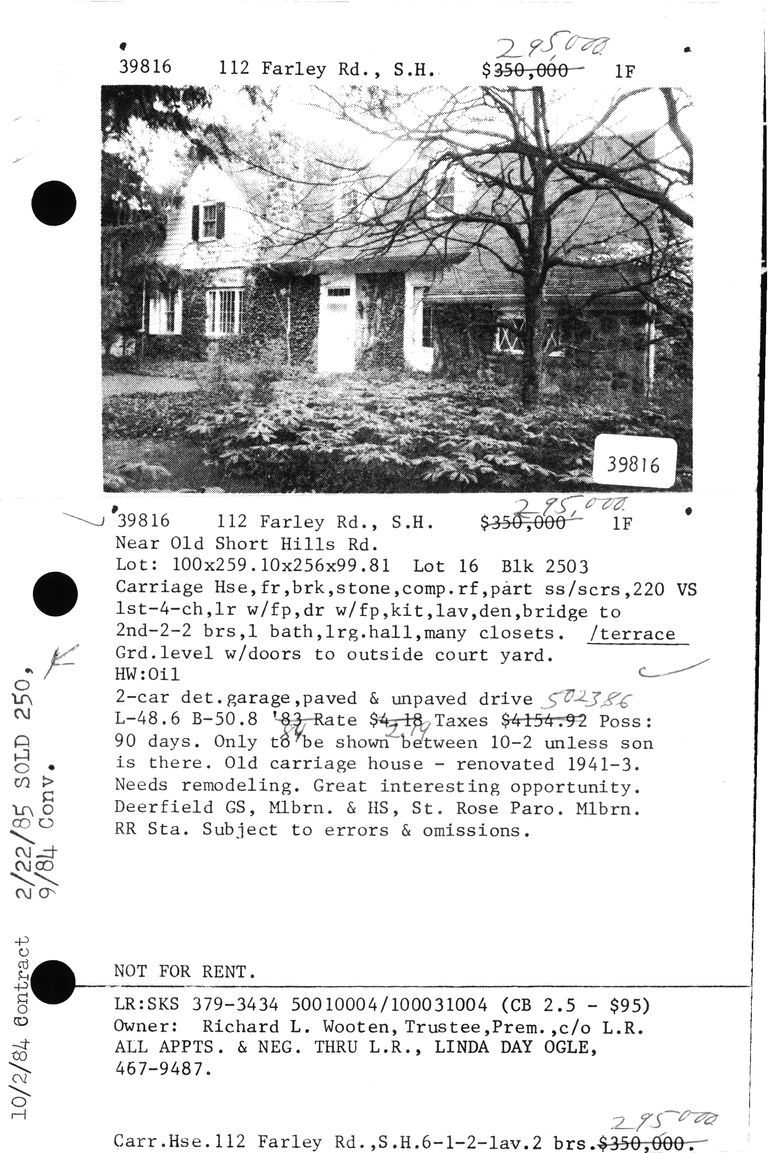 295,000
39816 112 Farley Rd., S.H. $350,000 1F
39816
295,000.
39816 112 Farley Rd., S.H. $350,000 1F
Near Old Short Hills Rd.
Lot: 100x259.10x256x99.81 Lot 16 Blk 2503
Carriage Hse,fr,brk,stone,comp.rf,part ss/scrs,220 VS
1st-4-ch,lr w/fp,dr w/fp,kit,lav,den,bridge to
2nd-2-2 brs,1 bath,lrg.hall,many closets. /terrace
Grd.level w/doors to outside court yard.
HW:Oil
2-car det.garage,paved & unpaved drive 502386
L-48.6 B-50.8 '83 Rate $4.18 Taxes $4154.92 Poss:
84 2.19
90 days. Only to be shown between 10-2 unless son
is there. Old carriage house - renovated 1941-3.
Needs remodeling. Great interesting opportunity.
Deerfield GS, Mlbrn. & HS, St. Rose Paro. Mlbrn.
RR Sta. Subject to errors & omissions.
NOT FOR RENT.
LR:SKS 379-3434 50010004/100031004 (CB 2.5 - $95)
Owner: Richard L. Wooten, Trustee,Prem.,c/o L.R.
ALL APPTS. & NEG. THRU L.R., LINDA DAY OGLE,
467-9487.
295000
Carr.Hse.112 Farley Rd.,S.H.6-1-2-lav.2 brs.$350,000.
10/2/84 Contract 2/22/85 SOLD 250,
9/84 Conv.